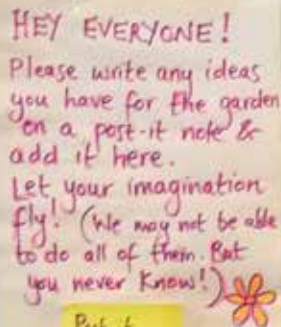 HEY EVERYONE!
Please write any ideas
you have for the garden
on a post-it note &
add it here.
Let your imagination
fly! (We may not be able
to do all of them. But
you never know!)
Post-it